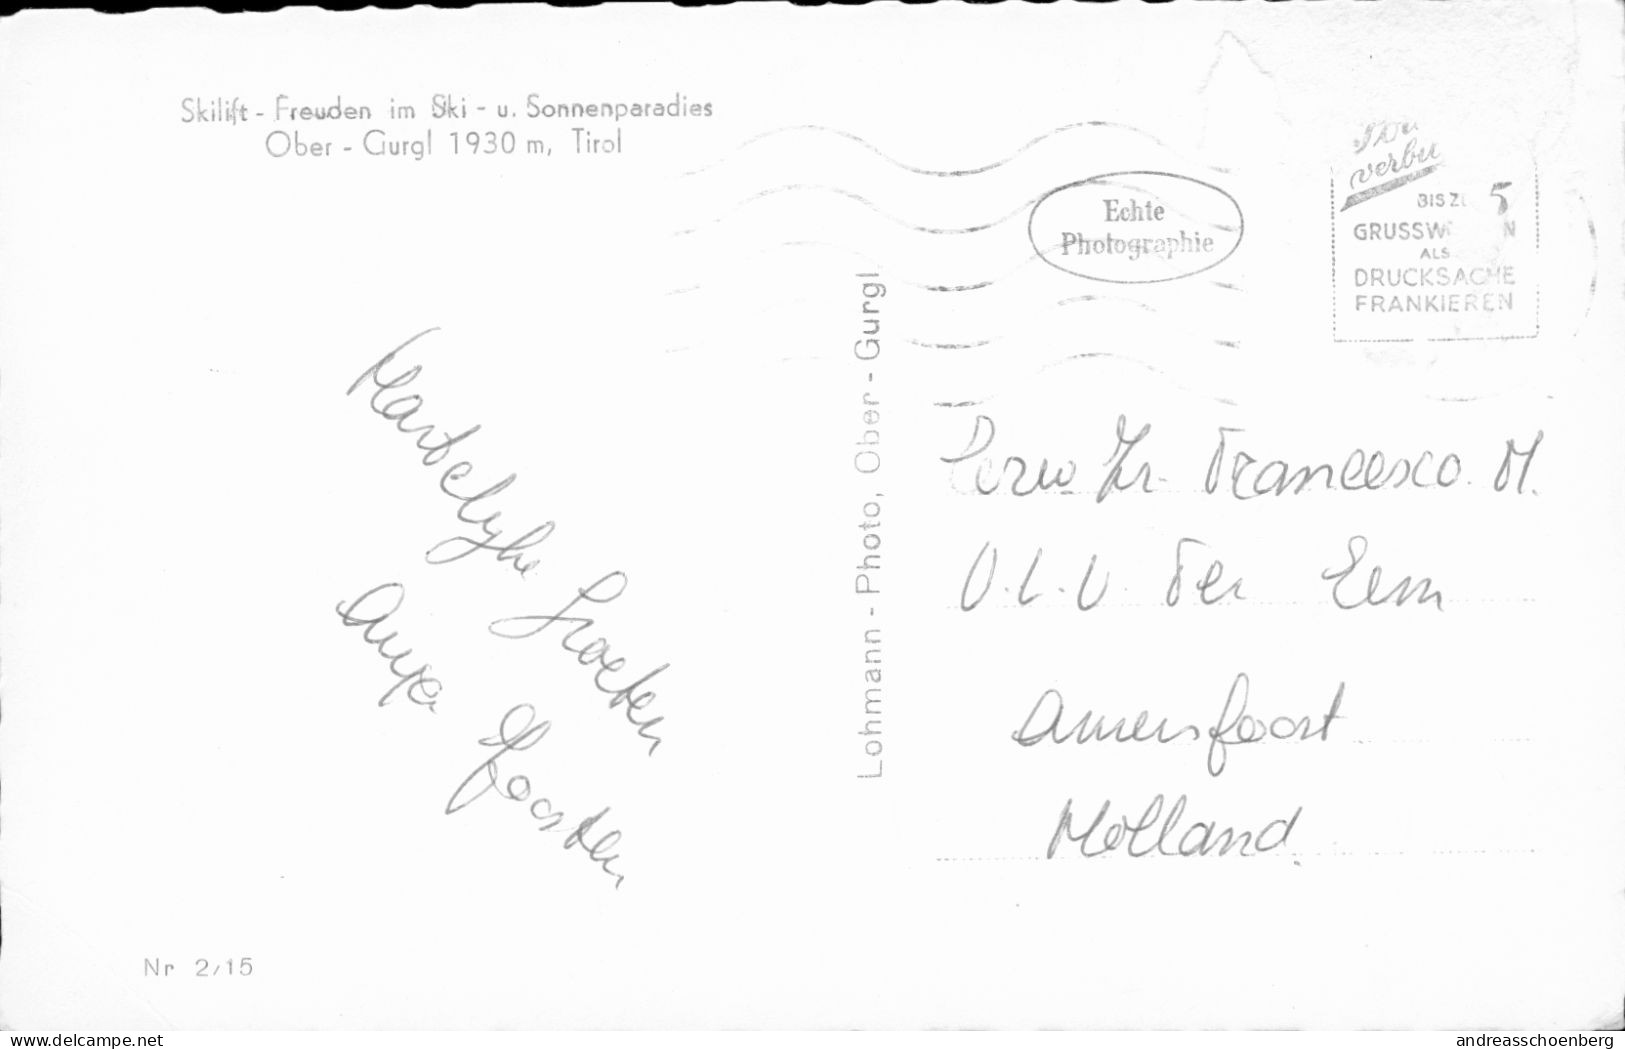 Skilift - Freuden im Ski - u. Sonnenparadies
Ober - Gurgl 1930 m, Tirol
Echte
Photographie
verbu
BIS ZU 5
GRUSSW N
ALS
DRUCKSACHE
FRANKIEREN
Lohmann - Photo, Ober - Gurgl
Hartelyke Groeten
Francesco. M.
V.L.V. der Eem
Amersfoort
Holland.
Nr 2/15
delcampe.net
andreasschoenberg